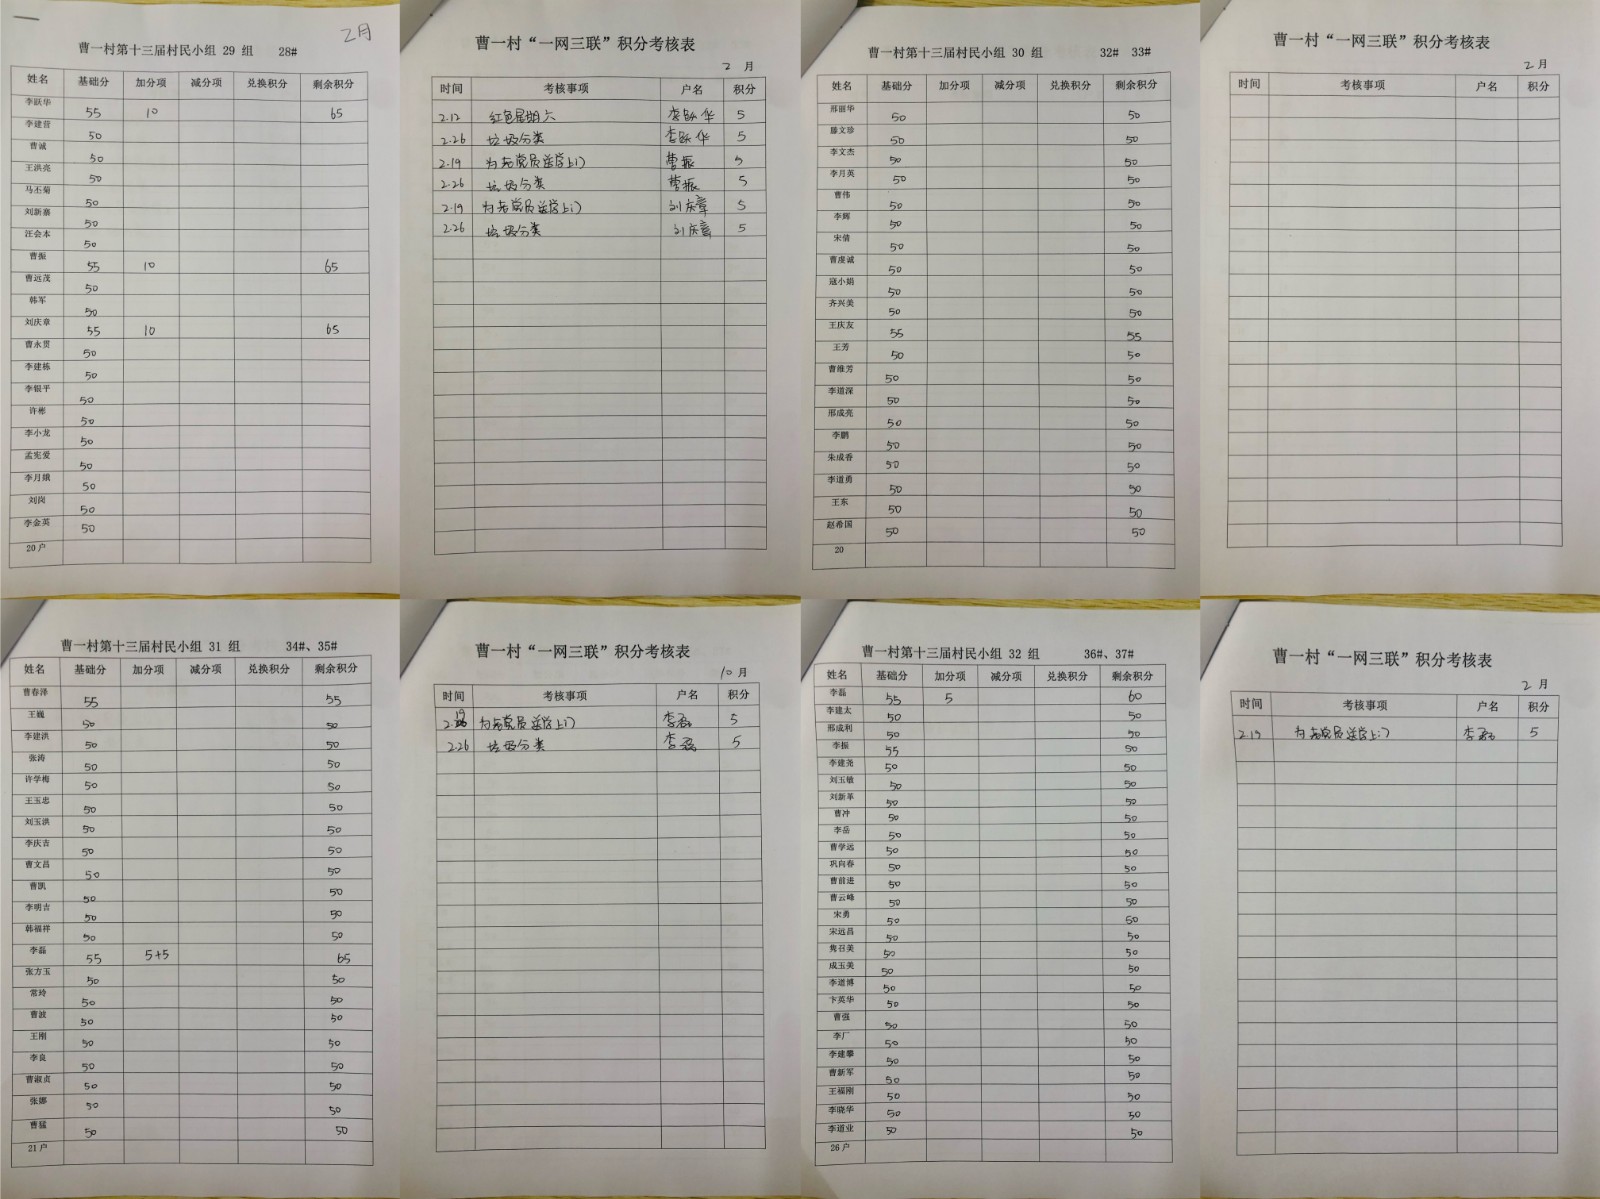 2月
曹一村第十三届村民小组 29 组 28#
姓名 基础分 加分项 减分项 兑换积分 剩余积分
李跃华 55 10 65
李建营 50
曹诚 50
王洪亮 50
马丕菊 50
刘新寨 50
汪会本 50
曹振 55 10 65
曹远茂 50
韩军 50
刘庆章 55 10 65
曹永贯 50
李建栋 50
李银平 50
许彬 50
李小龙 50
孟宪爱 50
李月娥 50
刘岗 50
李金英 50
20户
曹一村“一网三联”积分考核表
2 月
时间 考核事项 户名 积分
2.12 红色星期六 李跃华 5
2.26 垃圾分类 李跃华 5
2.19 为老党员送学上门 曹振 5
2.26 垃圾分类 曹振 5
2.19 为老党员送学上门 刘庆章 5
2.26 垃圾分类 刘庆章 5
曹一村第十三届村民小组 30 组 32# 33#
姓名 基础分 加分项 减分项 兑换积分 剩余积分
邢丽华 50 50
滕文珍 50 50
李文杰 50 50
李月英 50 50
曹伟 50 50
李辉 50 50
宋倩 50 50
曹虔诚 50 50
寇小娟 50 50
齐兴美 50 50
王庆友 55 55
王芳 50 50
曹维芳 50 50
李道深 50 50
邢成亮 50 50
李鹏 50 50
朱成香 50 50
李道勇 50 50
王东 50 50
赵希国 50 50
20
曹一村“一网三联”积分考核表
2 月
时间 考核事项 户名 积分
曹一村第十三届村民小组 31 组 34#、35#
姓名 基础分 加分项 减分项 兑换积分 剩余积分
曹春泽 55 55
王巍 50 50
李建洪 50 50
张涛 50 50
许学梅 50 50
王玉忠 50 50
刘玉洪 50 50
李庆吉 50 50
曹文昌 50 50
曹凯 50 50
李明吉 50 50
韩福祥 50 50
李磊 55 5+5 65
张方玉 50 50
常玲 50 50
曹波 50 50
王刚 50 50
李良 50 50
曹淑贞 50 50
张娜 50 50
曹猛 50 50
21户
曹一村“一网三联”积分考核表
10 月
时间 考核事项 户名 积分
2.19 为老党员送学上门 李磊 5
2.26 垃圾分类 李磊 5
曹一村第十三届村民小组 32 组 36#、37#
姓名 基础分 加分项 减分项 兑换积分 剩余积分
李磊 55 5 60
李建太 50 50
邢成利 50 50
李振 55 50
李建尧 50 50
刘玉敏 50 50
刘新革 50 50
曹冲 50 50
李岳 50 50
曹学远 50 50
巩向春 50 50
曹前进 50 50
曹云峰 50 50
宋勇 50 50
宋远昌 50 50
隽召美 50 50
成玉美 50 50
李道博 50 50
卞英华 50 50
曹强 50 50
李厂 50 50
李建攀 50 50
曹新军 50 50
王福刚 50 50
李晓华 50 50
李道业 50 50
26户
曹一村“一网三联”积分考核表
2 月
时间 考核事项 户名 积分
2.19 为老党员送学上门 李磊 5